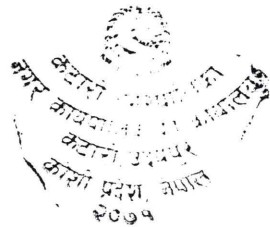 कटारी नगरपालिका
नगर कार्यपालिकाको कार्यालय
कटारी, उदयपुर
कोशी प्रदेश, नेपाल
२०७१